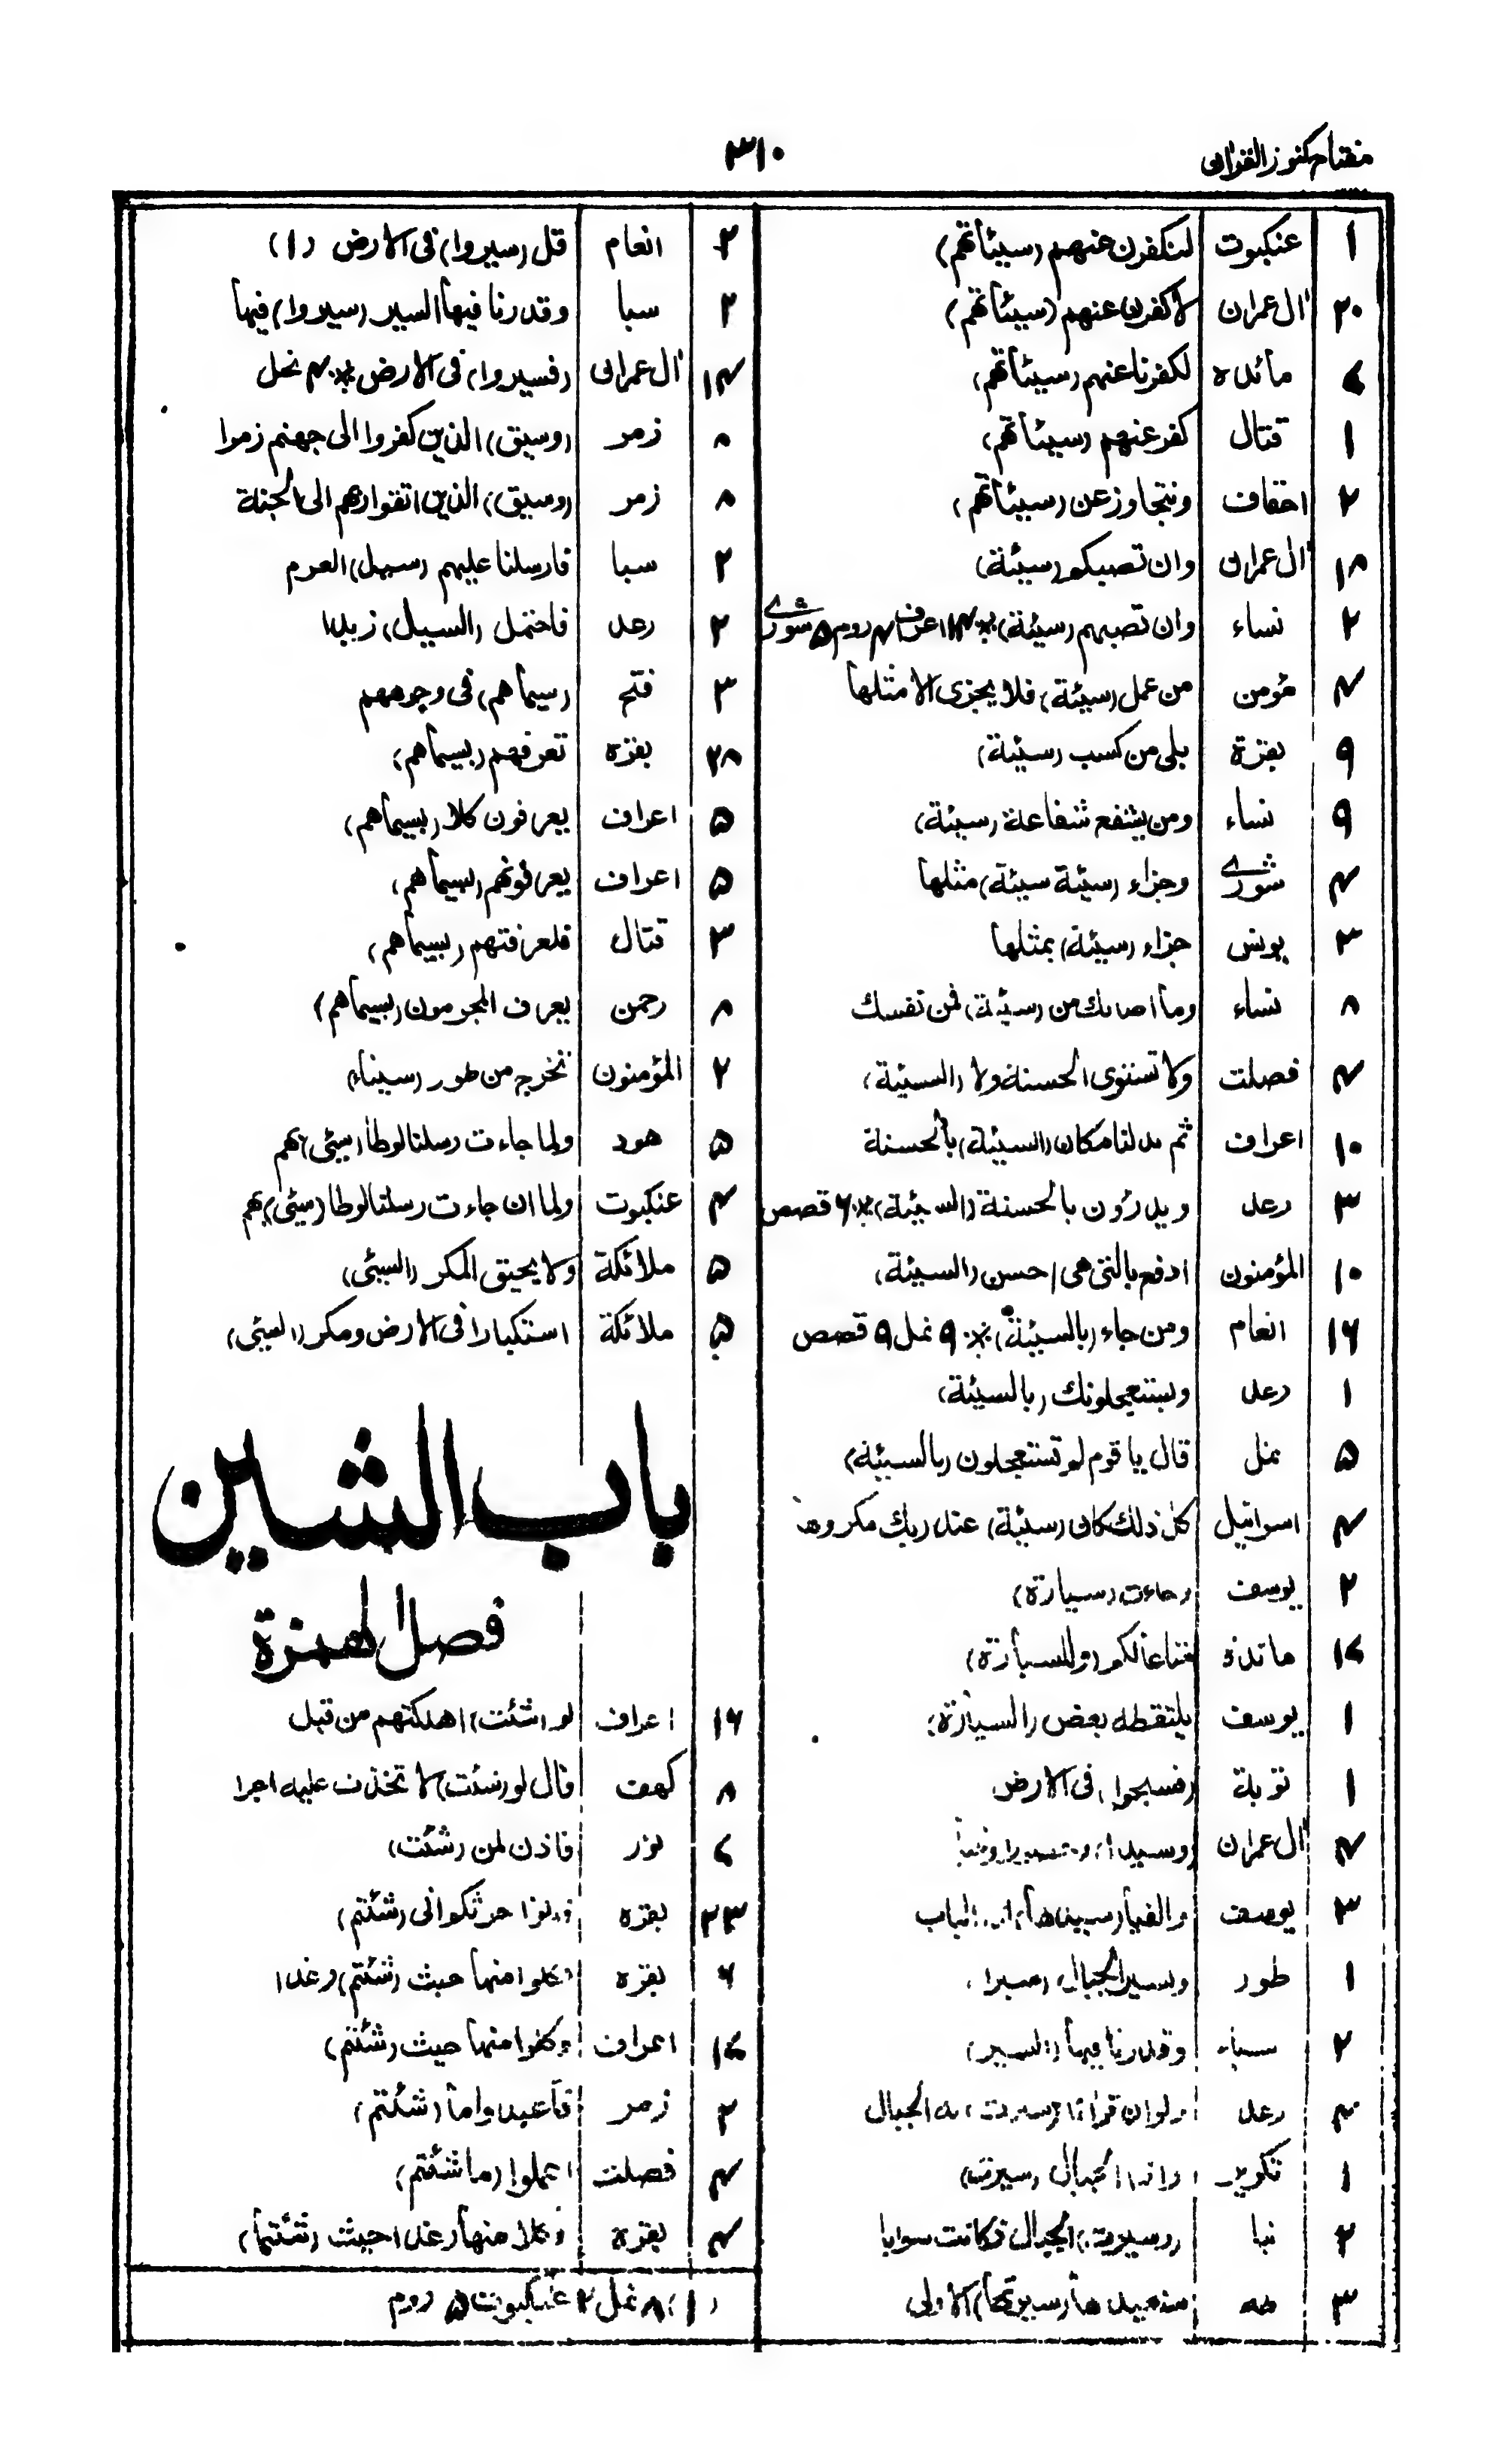 مفتاح كنوز القران
٣١٠
١ عنكبوت لنكفرن عنهم (سيئاتهم)
٢٠ اٰل عمران لاكفرن عنهم (سيئاتهم)
٧ مائدة لكفرنا عنهم (سيئاتهم)
١ قتال كفر عنهم (سيئاتهم)
٢ احقاف ونتجاوز عن (سيئاتهم)
١٨ اٰل عمران وان تصبكم (سيئة)
٢ نساء وان تصبهم (سيئة) ٪ ١٤ اعراف ٤ روم ٥ شورے
٤ مؤمن من عمل (سيئة) فلا يجزى الا مثلها
٩ بقرة بلى من كسب (سيئة)
٩ نساء ومن يشفع شفاعة (سيئة)
٤ شورے وجزاء (سيئة سيئة) مثلها
٣ يونس جزاء (سيئة) بمثلها
٨ نساء وما اصابك من (سيئة) فمن نفسك
٤ فصلت ولا تستوى الحسنة ولا (السيئة)
١٠ اعراف ثم بدلنا مكان (السيئة) بالحسنة
٣ رعد ويدرؤن بالحسنة (السيئة) ٪ ٦ قصص
١٠ المؤمنون ادفع بالتى هى احسن (السيئة)
١٦ انعام ومن جاء (بالسيئة) ٪ ٩ نمل ٩ قصص
١ رعد ويستعجلونك (بالسيئة)
٥ نمل قال يا قوم لم تستعجلون (بالسيئة)
٤ اسرائيل كل ذلك كان (سيئة) عند ربك مكروها
٢ يوسف وجاءت (سيارة)
١٤ مائدة متاعا لكم (وللسيارة)
١ يوسف يلتقطه بعض (السيارة)
١ توبة (فسيحوا) فى الارض
٤ اٰل عمران
٣ يوسف والفيا (سيدها) الباب
١ طور وتسير الجبال (سيرا)
٢ سباء وقدرنا فيها (السير)
٤ رعد ولو ان قرانا (سيرت) به الجبال
١ تكوير واذا الجبال (سيرت)
٢ نبا (وسيرت) الجبال فكانت سرابا
٣ طه سنعيدها (سيرتها) الاولى
٢ انعام قل (سيروا) فى الارض (١)
٢ سبا وقدرنا فيها السير (سيروا) فيها
١٤ اٰل عمران (فسيروا) فى الارض ٪ ٤ نحل
٨ زمر (وسيق) الذين كفروا الى جهنم زمرا
٨ زمر (وسيق) الذين اتقوا ربهم الى الجنة
٢ سبا فارسلنا عليهم (سيل) العرم
٢ رعد فاحتمل (السيل) زبدا
٣ فتح (سيماهم) فى وجوههم
٢٨ بقره تعرفهم (بسيماهم)
٥ اعراف يعرفون كلا (بسيماهم)
٥ اعراف يعرفونهم (بسيماهم)
٣ قتال فلعرفتهم (بسيماهم)
٨ رحمن يعرف المجرمون (بسيماهم)
٢ المؤمنون تخرج من طور (سيناء)
٥ هود ولما جاءت رسلنا لوطا (سيئى) بهم
٤ عنكبوت ولما ان جاءت رسلنا لوطا (سيئى) بهم
٥ ملائكة ولا يحيق المكر (السيئى)
٥ ملائكة استكبارا فى الارض ومكر (السيئى)
باب الشين
فصل الهمزة
١٦ اعراف لو (شئت) اهلكتهم من قبل
٨ كهف قال لو (شئت) لا تخذت عليه اجرا
٧ نور فاذن لمن (شئت)
٢٣ بقره حرثكم انى (شئتم)
٦ بقره فكلوا منها حيث (شئتم) رغدا
١٤ اعراف وكلوا منها حيث (شئتم)
٢ زمر فاعبدوا ما (شئتم)
٤ فصلت اعملوا (ما شئتم)
٤ بقرة وكلا منها رغدا حيث (شئتما)
(١) ٨ نمل ٢ عنكبوت ٥ روم